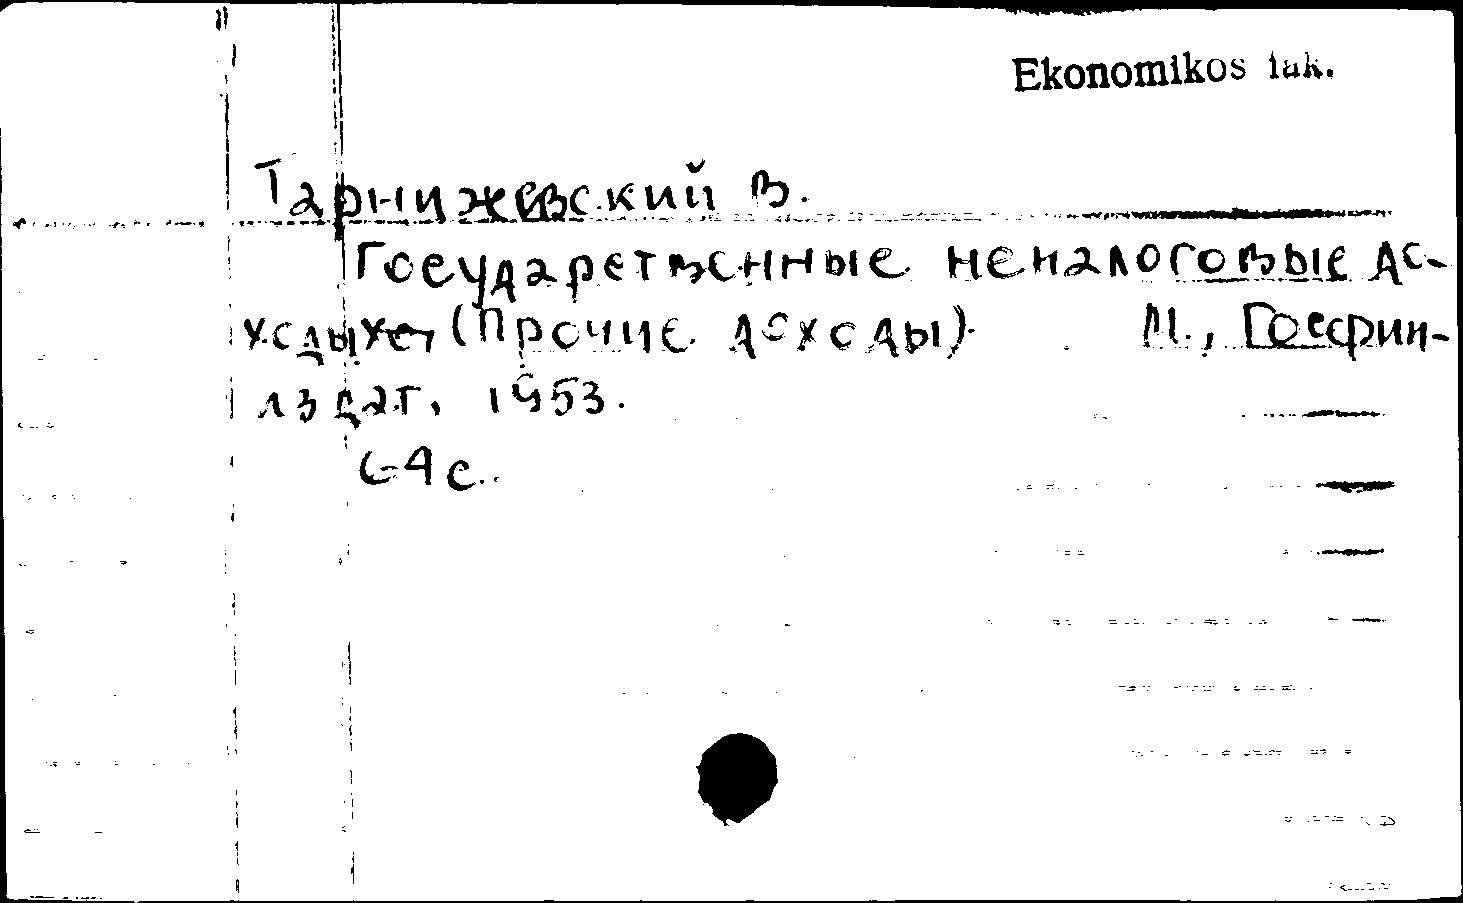 Ekonomikos fak.
Тарнижевский В.
Государственные неналоговые до-
ходы (Прочие доходы). М., Госфин-
издат, 1953.
64 с.